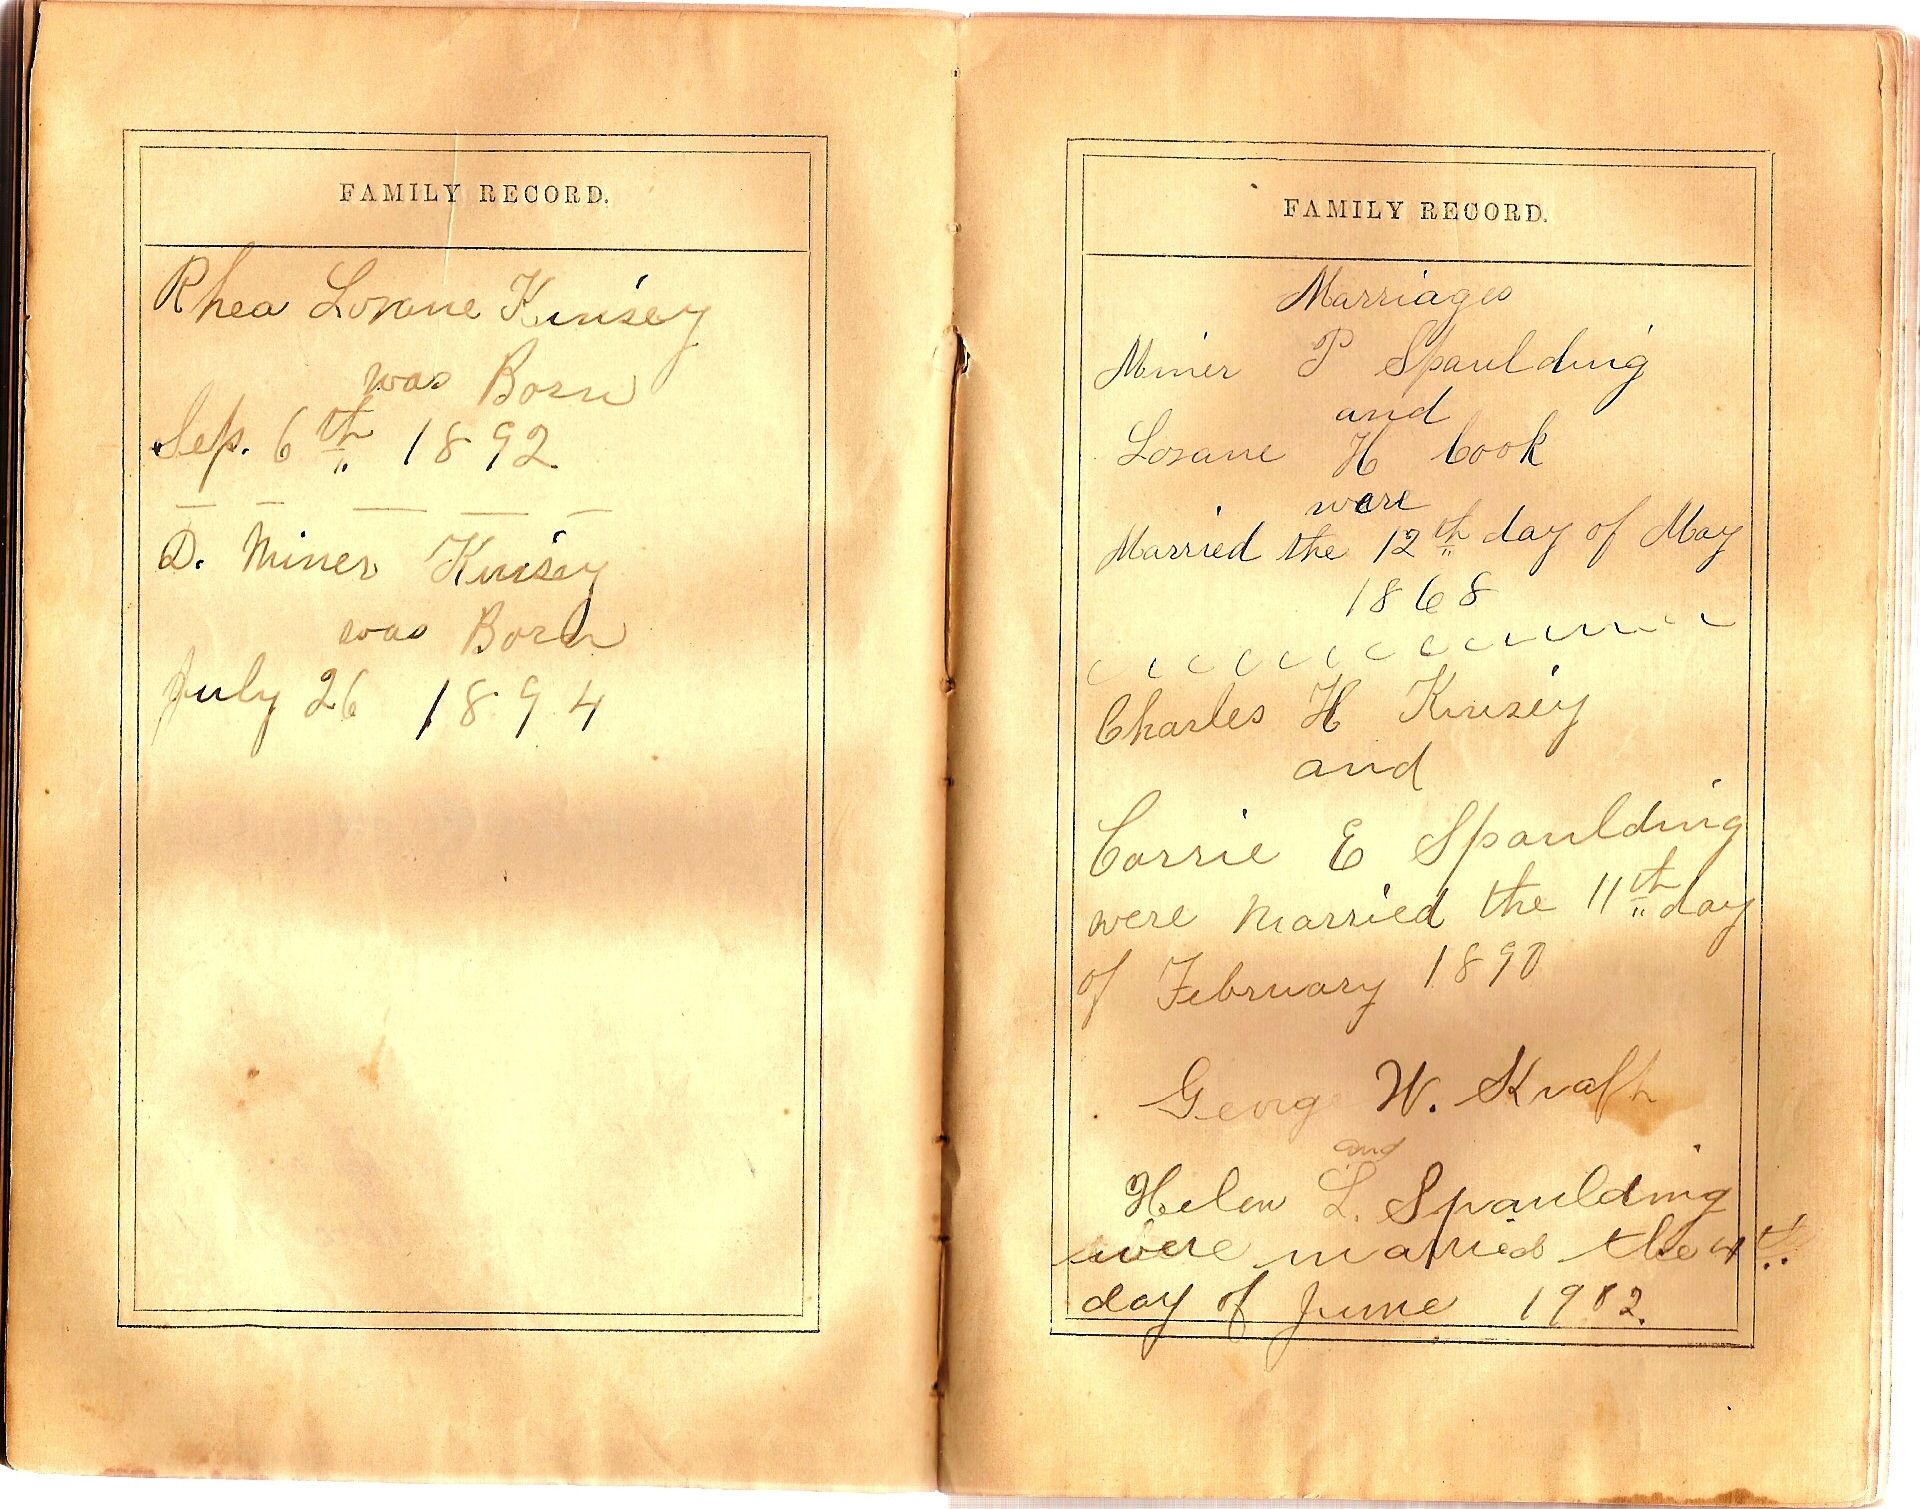 FAMILY RECORD.
Rhea Losane Kinsey
was Born
Sep. 6th 1892
D. Miner Kinsey
was Born
July 26 1894
FAMILY RECORD.
Marriages
Miner P Spaulding
and
Losane H Cook
were
Married the 12th day of May
1868
Charles H Kinsey
and
Carrie E Spaulding
were Married the 11th day
of February 1890
George W. Kraft
and
Helen L. Spaulding
were married the 4th
day of June